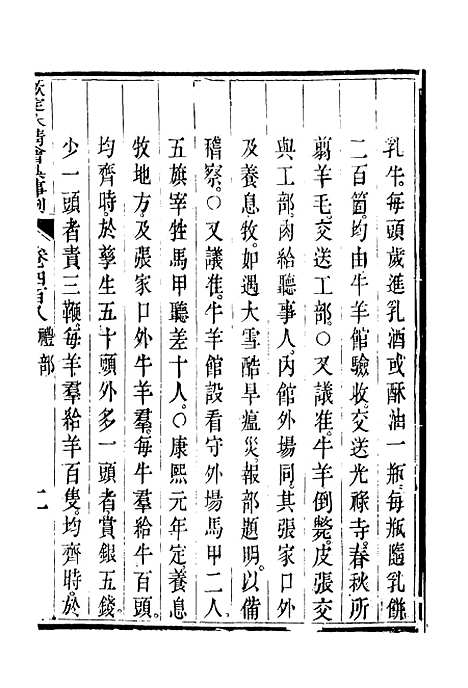 乳牛。每頭歲進乳酒或酥油一瓶。每瓶隨乳餅
二百箇。均由牛羊館驗收。交送光祿寺。春秋所
翦羊毛。交送工部。○又議准。牛羊倒斃。皮張交
與工部。肉給聽事人。內館外場同。其張家口外
及養息牧。如遇大雪酷旱瘟災。報部題明。以備
稽察。○又議准。牛羊館設看守外場馬甲二人。
五旗宰牲馬甲聽差十人。○康熙元年定。養息
牧地方。及張家口外牛羊羣。每牛羣給牛百頭。
均齊時。於孳生五十頭外多一頭者。賞銀五錢。
少一頭者責三鞭。每羊羣給羊百隻。均齊時。於
欽定大清會典事例 卷四百八 禮部 二